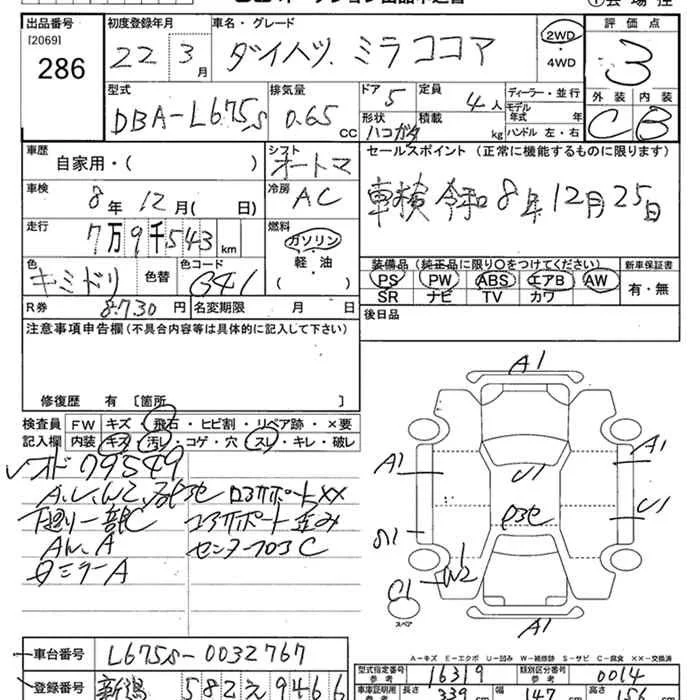 出品番号
[2069]
286
初度登録年月
22 3月
車名・グレード
ダイハツ ミラココア
2WD
・
4WD
評価点
3
外装 内装
C B
型式
DBA-L675S
排気量
0.65 CC
ドア
5
定員
4人
形状
ハコガタ
積載
kg
ディーラー・並行
モデル
年式 年
ハンドル 左・右
車歴
自家用・( )
シフト
オートマ
セールスポイント (正常に機能するものに限ります)
車検 令和8年12月25日
車検
8年12月( 日)
冷房
AC
走行
7万9千543km
燃料
ガソリン
・
軽・油
( )
色
キミドリ
色替
色コード
G41
装備品(純正品に限り〇をつけてください)
PS PW ABS エアB AW
SR ナビ TV カワ
新車保証書
有・無
R券 8730円
名変期限 月 日
後日品
注意事項申告欄(不具合内容等は具体的に記入して下さい)
修復歴 有 [箇所 ]
検査員
記入欄
FW キズ・飛石・ヒビ割・リペア跡・×要
内装 キズ・汚レ・コゲ・穴・スレ・キレ・破レ
79549
A.U.W2
コアサポートXX
下廻り一部C
コアサポート歪み
AW.A
センターフロアC
ミラーA
A1
A1
A1
U1
U1
W2
C1
スペア
A1
A-キズ E-エクボ U-凹み W-補修跡 S-サビ C-腐食 XX-交換済
車台番号 L675S-0032767
登録番号 新潟 582 え 9466
型式指定番号
参考
16319
類別区分番号
参考
0014
車庫証明用
参考
長さ 339cm 幅 147cm 高さ 156cm